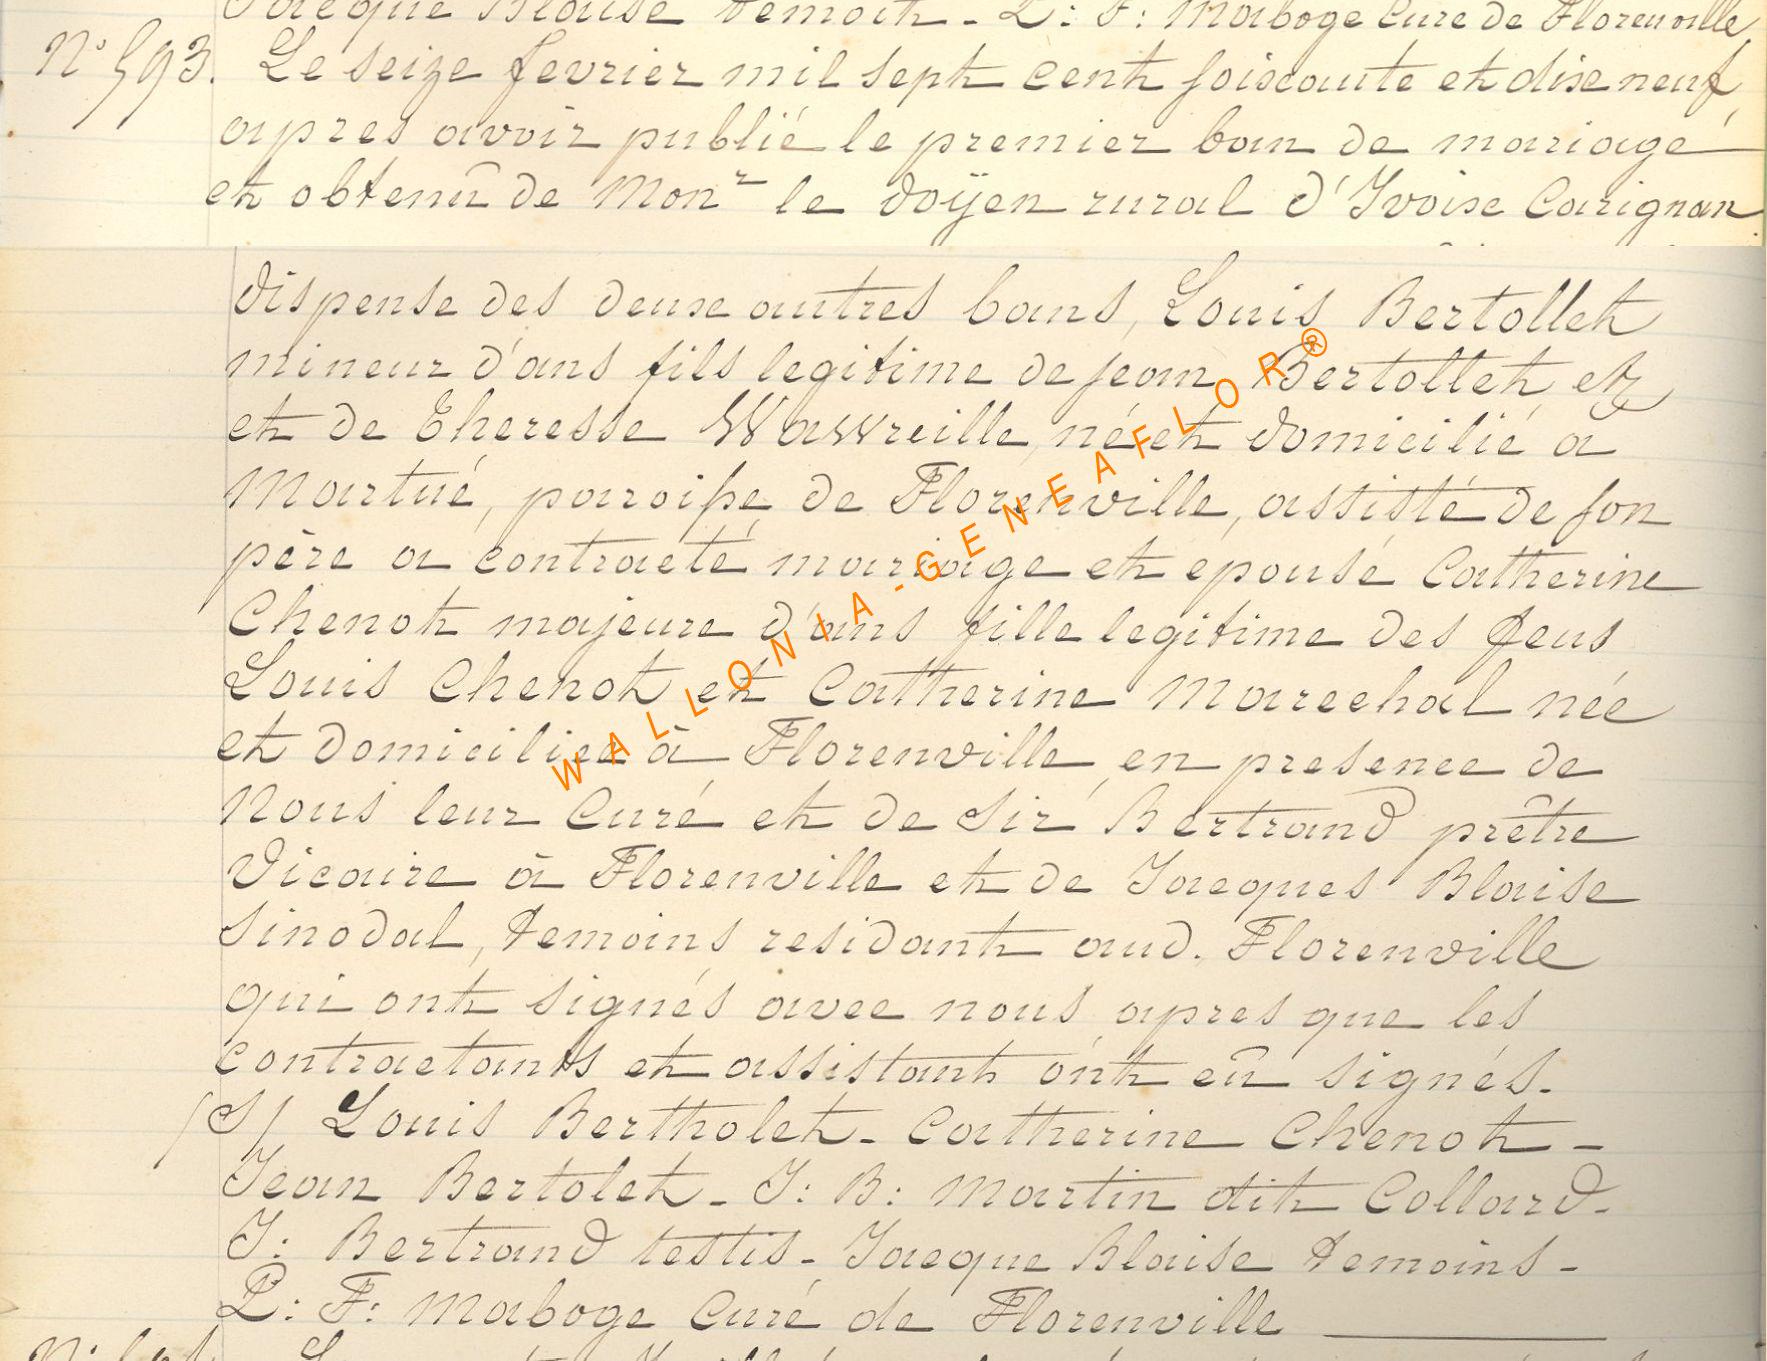 Jacque Blaise temoin - L: F: Maboge Curé de Florenville
N° 593. Le seize fevrier mil sept cent soiscante et dixe neuf
apres avoir publié le premier ban de mariage
et obtenû de Monr le doÿen rural d'Yvoise Carignan
dispense des deuxe autres bans, Louis Bertollet
mineur d'ans fils legitime de jean Bertollet et
et de Theresse Wawreille, né et domicilié a
Martué, paroisse de Florenville, assisté de son
père a contracté mariage et epousé Catherine
Chenot majeure d'ans fille legitime des feus
Louis Chenot et Catherine Marechal née
et domiciliee à Florenville en presence de
Nous leur Curé et de Sir Bertrand prêtre
Vicaire à Florenville et de Jacques Blaise
Sinodal, temoins residant aud. Florenville
qui ont signés avec nous apres que les
contractants et assistant ont eû signés.
(S) Louis Bertholet - Catherine Chenot -
Jean Bertolet - J: B: Martin dit Collard -
J: Bertrand testis - Jacque Blaise temoins -
L: F: Maboge Curé de Florenville
WALLONIA-GENEAFLOR®